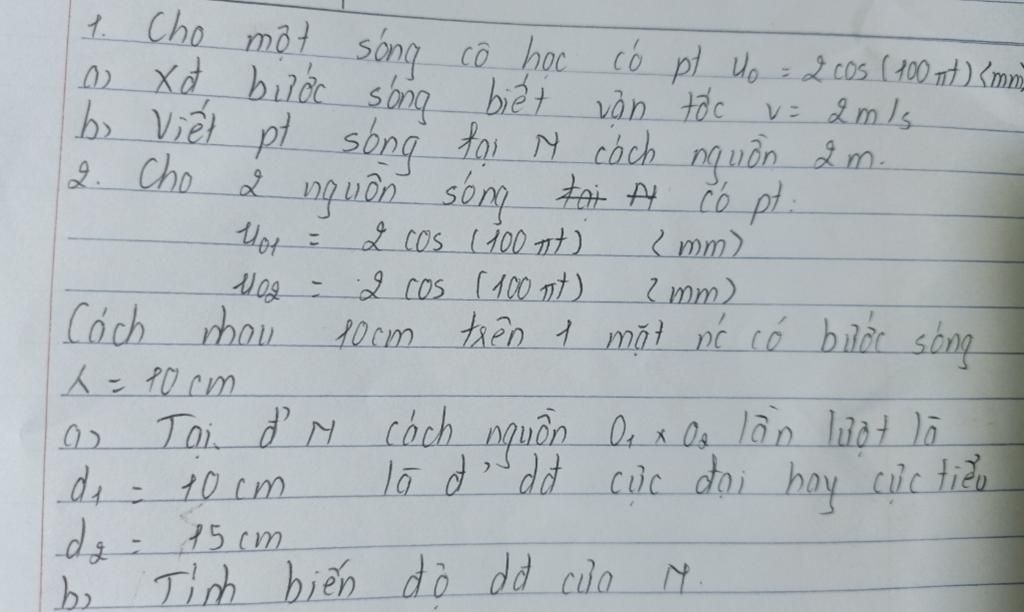 1. Cho một sóng cơ học có pt u₀ = 2cos(100πt) (mm)
a) Xđ bước sóng biết vận tốc v = 2m/s
b) Viết pt sóng tại M cách nguồn 2m.
2. Cho 2 nguồn sóng tại M có pt:
u₀₁ = 2 cos (100πt) (mm)
u₀₂ = 2 cos (100πt) (mm)
Cách nhau 10cm trên 1 mặt nc có bước sóng
λ = 10cm
a) Tại đ' M cách nguồn O₁ x O₂ lần lượt là
d₁ = 10cm là đ' dđ cực đại hay cực tiểu
d₂ = 15cm
b) Tính biến độ dđ của M.